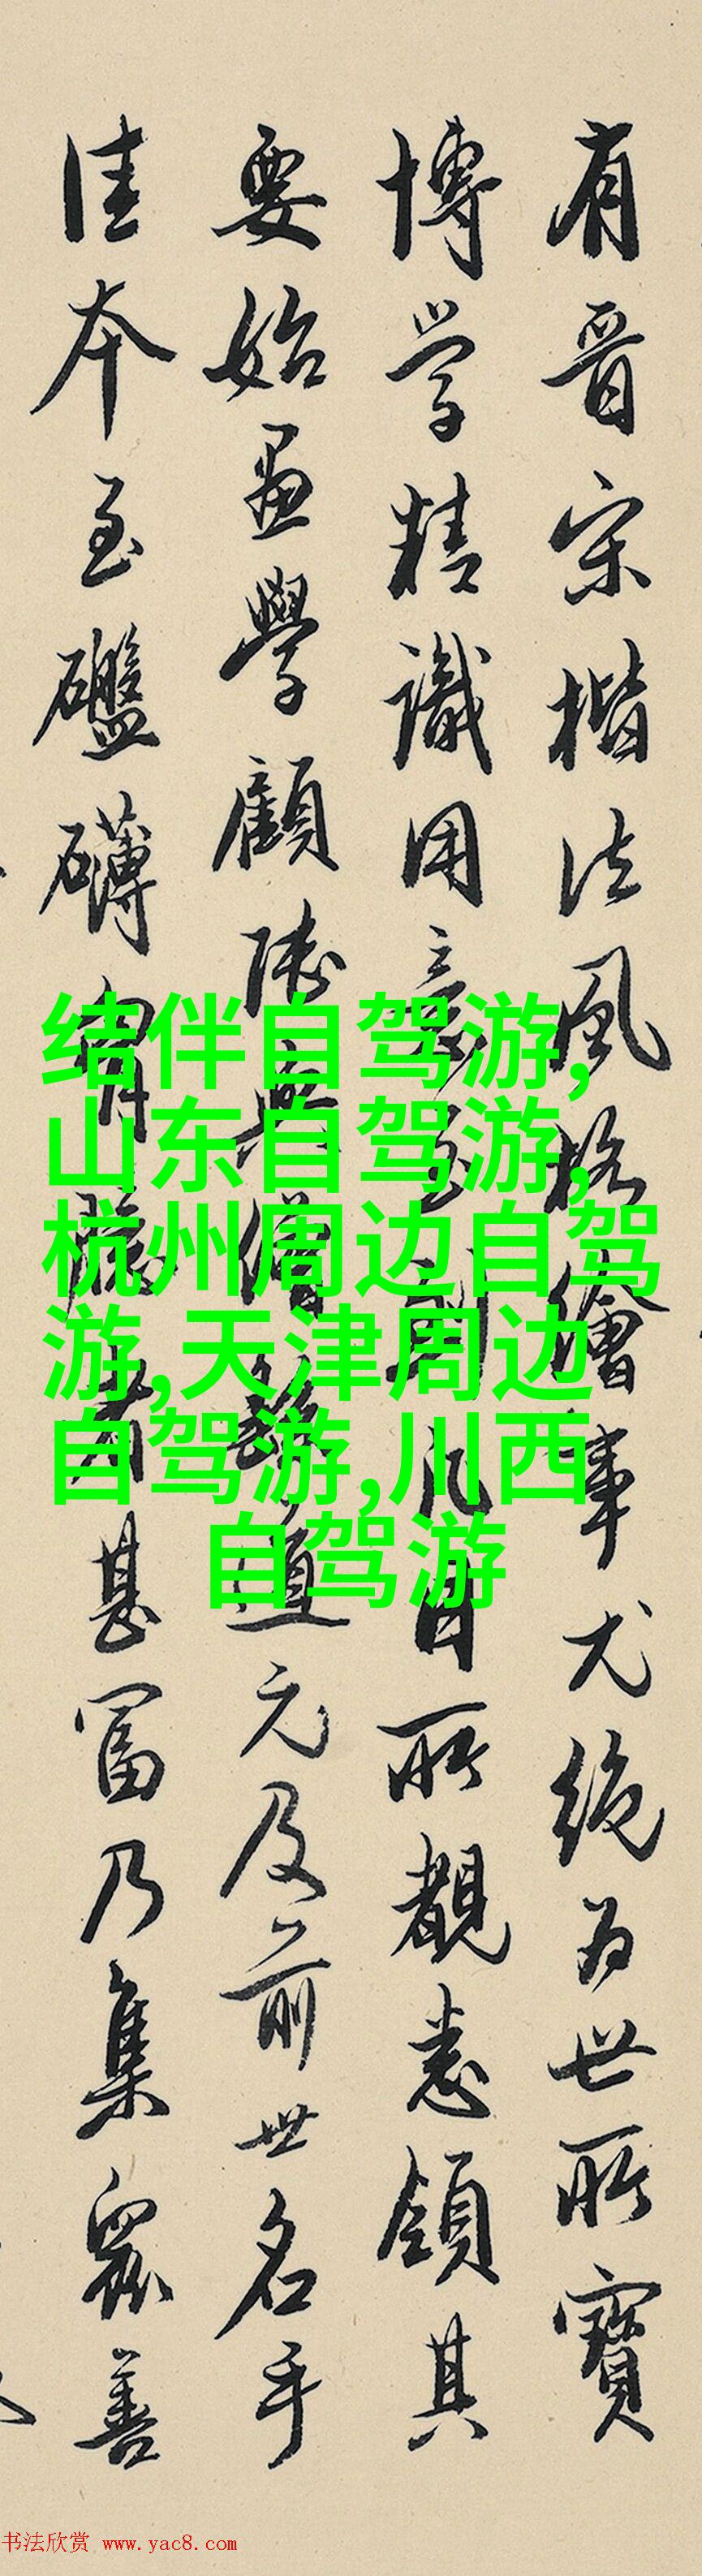 有晋宋楷法風格繪事尤絕為世所寶
博学精識用意至到凡目所覩悉領其
要始畫學顧陸與僧繇道元及前世名手
佳本至礴胸臆者甚富乃集眾善
结伴自驾游,
山东自驾游,
杭州周边自驾
游,天津周边
自驾游,川西
自驾游
书法欣赏 www.yac8.com